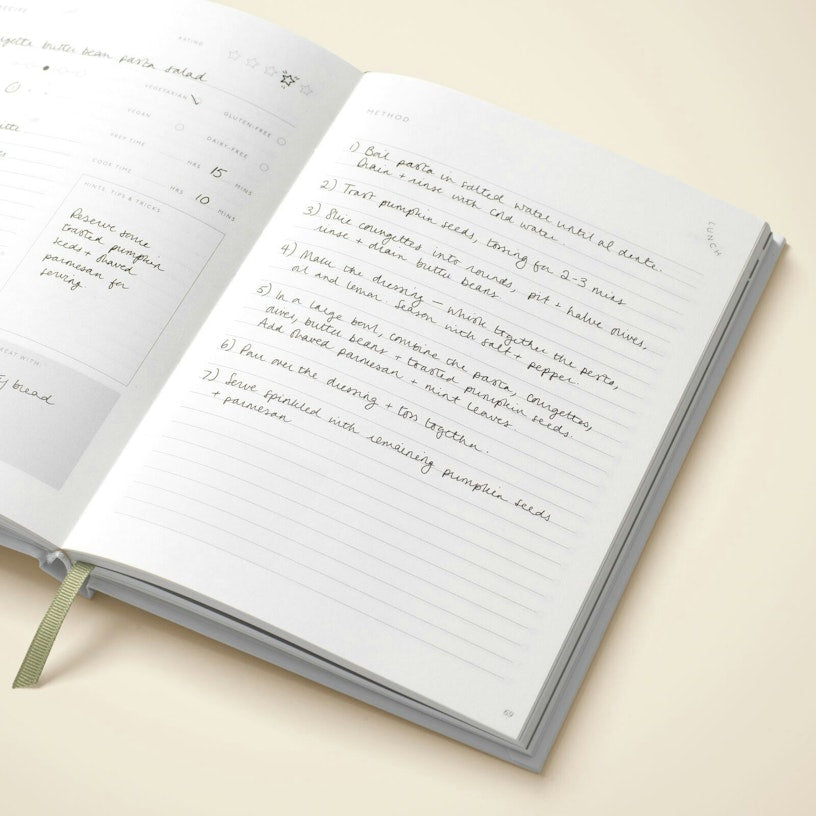 RECIPE
butter bean pasta salad
RATING
VEGETARIAN
GLUTEN-FREE
VEGAN
DAIRY-FREE
PREP TIME
HRS 15 MINS
COOK TIME
HRS 10 MINS
HINTS, TIPS & TRICKS
Reserve some
toasted pumpkin
seeds + shaved
parmesan for
serving
GREAT WITH
bread
METHOD
LUNCH
1) Boil pasta in salted water until al dente.
Drain + rinse with cold water.
2) Toast pumpkin seeds, tossing for 2-3 mins
3) Slice courgettes into rounds, pit + halve olives,
rinse + drain butter beans
4) Make the dressing – whisk together the pesto,
oil and lemon. Season with salt + pepper.
5) In a large bowl, combine the pasta, courgettes,
olives, butter beans + toasted pumpkin seeds.
Add shaved parmesan + mint leaves
6) Pour over the dressing + toss together.
7) Serve sprinkled with remaining pumpkin seeds
+ parmesan
69